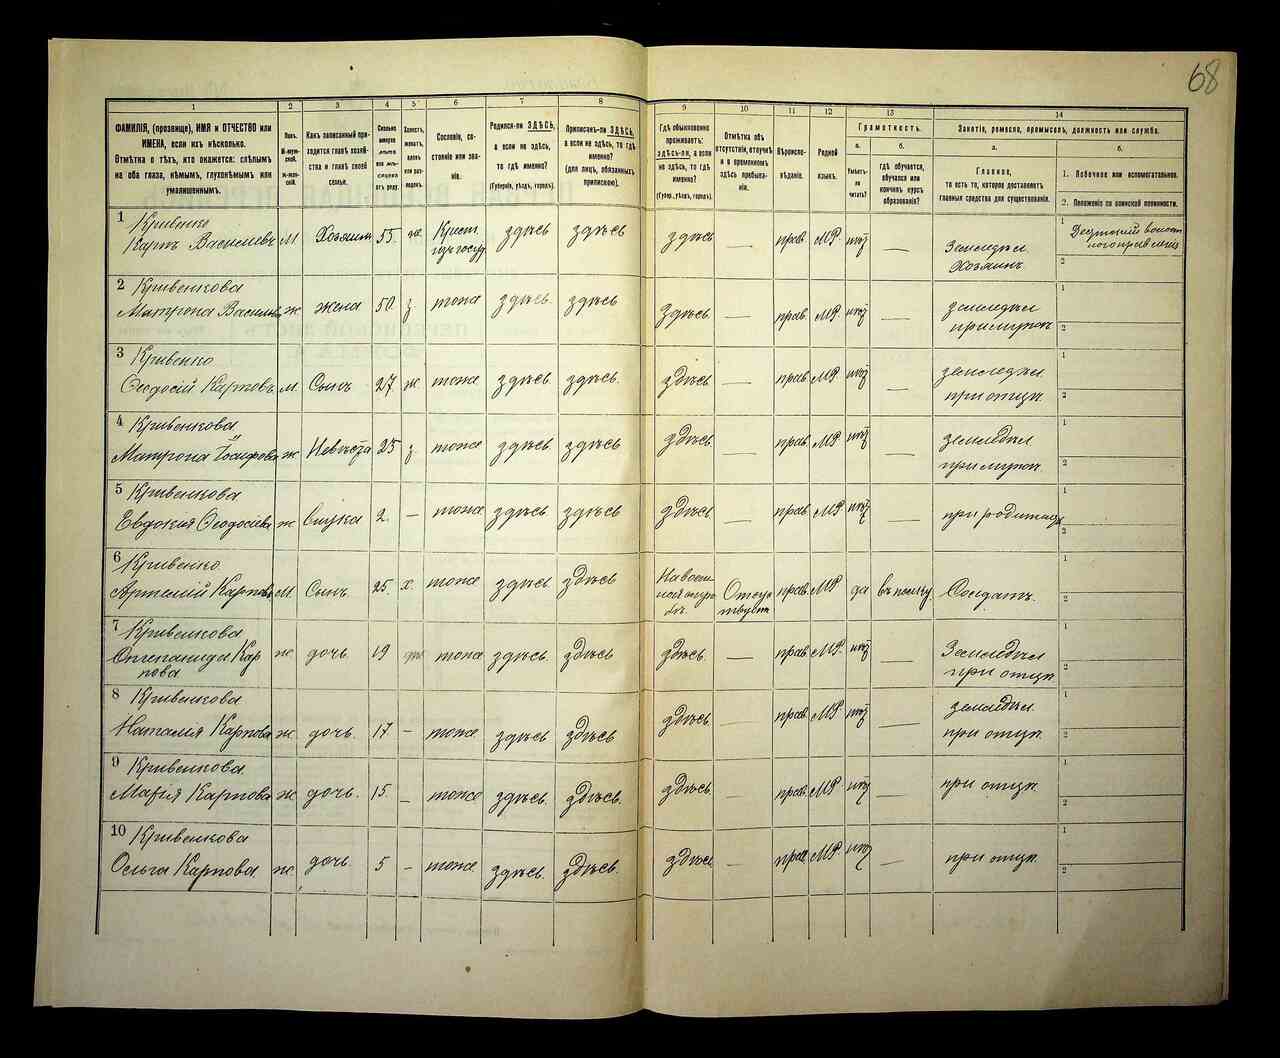 68
1
2
3
4
5
6
7
8
9
10
11
12
13
14
ФАМИЛІЯ, (прозвище), ИМЯ и ОТЧЕСТВО или
ИМЕНА, если ихъ нѣсколько.
Отмѣтка о тѣхъ, кто окажется: слѣпымъ
на оба глаза, нѣмымъ, глухонѣмымъ или
умалишеннымъ.
Полъ.
М-муж-
ской.
Ж-жен-
скій.
Какъ записанный при-
ходится главѣ хозяй-
ства и главѣ своей
семьи.
Сколько
Холостъ,
женатъ,
Сословіе, со-
стояніе или зва-
ніе.
Родился-ли ЗДѢСЬ,
а если не здѣсь,
то гдѣ именно?
(Губернія, уѣздъ, городъ).
Приписанъ-ли ЗДѢСЬ,
а если не здѣсь, то гдѣ
именно?
(для лицъ, обязанныхъ
припискою).
Гдѣ обыкновенно
проживаетъ:
здѣсь-ли, а если
не здѣсь, то гдѣ
именно?
(Губер., уѣздъ, городъ).
Отмѣтка объ
отсутствіи, отлучкѣ
и о временномъ
здѣсь пребыва-
ніи.
Вѣроиспо-
вѣданіе.
Родной
языкъ.
Грамотность.
а.
б.
Умѣетъ-
ли
читать?
гдѣ обучается,
обучался или
кончилъ курсъ
образованія?
Занятія, ремесло, промыселъ, должность или служба.
а.
б.
Главное,
то есть то, которое доставляетъ
главныя средства для существованія.
1. Побочное или вспомогательное.
2. Положеніе по воинской повинности.
1 Кривенко
Карпъ Васильевъ М. Хозяинъ 55 ж Крест. здѣсь здѣсь здѣсь — прав. МР — Земледѣл. Хозяинъ 1
2
2 Кривенкова
Матрона Василь ж жена 50. з. тоже здѣсь. здѣсь здѣсь — прав. МР — земледѣл. при мужѣ 1
2
3 Кривенко
Ѳеодосій Карповъ М. Сынъ 27. ж. тоже здѣсь. здѣсь. здѣсь — прав МР — земледѣл. при отцѣ 1
2
4 Кривенкова
Матрона Іосифова ж Невѣстка 25 з. тоже здѣсь здѣсь здѣсь — прав. МР — земледѣл. при мужѣ. 1
2
5 Кривенкова
Евдокія Ѳеодосіева ж внучка 2. — тоже здѣсь здѣсь здѣсь — прав. МР — при родителях 1
2
6 Кривенко
Артемій Карповъ М. Сынъ. 25. х. тоже здѣсь здѣсь прав. МР да въ полку. Солдатъ. 1
2
7 Кривенкова
Степанида Кар
пова ж. дочь 19 тоже здѣсь. здѣсь здѣсь. — прав. МР — Земледѣл при отцѣ 1
2
8 Кривенкова
Наталія Карпова ж. дочь. 17 – тоже здѣсь здѣсь здѣсь. — прав. МР — земледѣл. при отцѣ. 1
2
9 Кривенкова.
Марія Карпова ж. дочь. 15. – тоже здѣсь. здѣсь. здѣсь. — прав. МР — при отцѣ. 1
2
10 Кривенкова
Ольга Карпова. ж. дочь. 5 – тоже здѣсь. здѣсь. здѣсь — прав МР — при отцѣ. 1
2